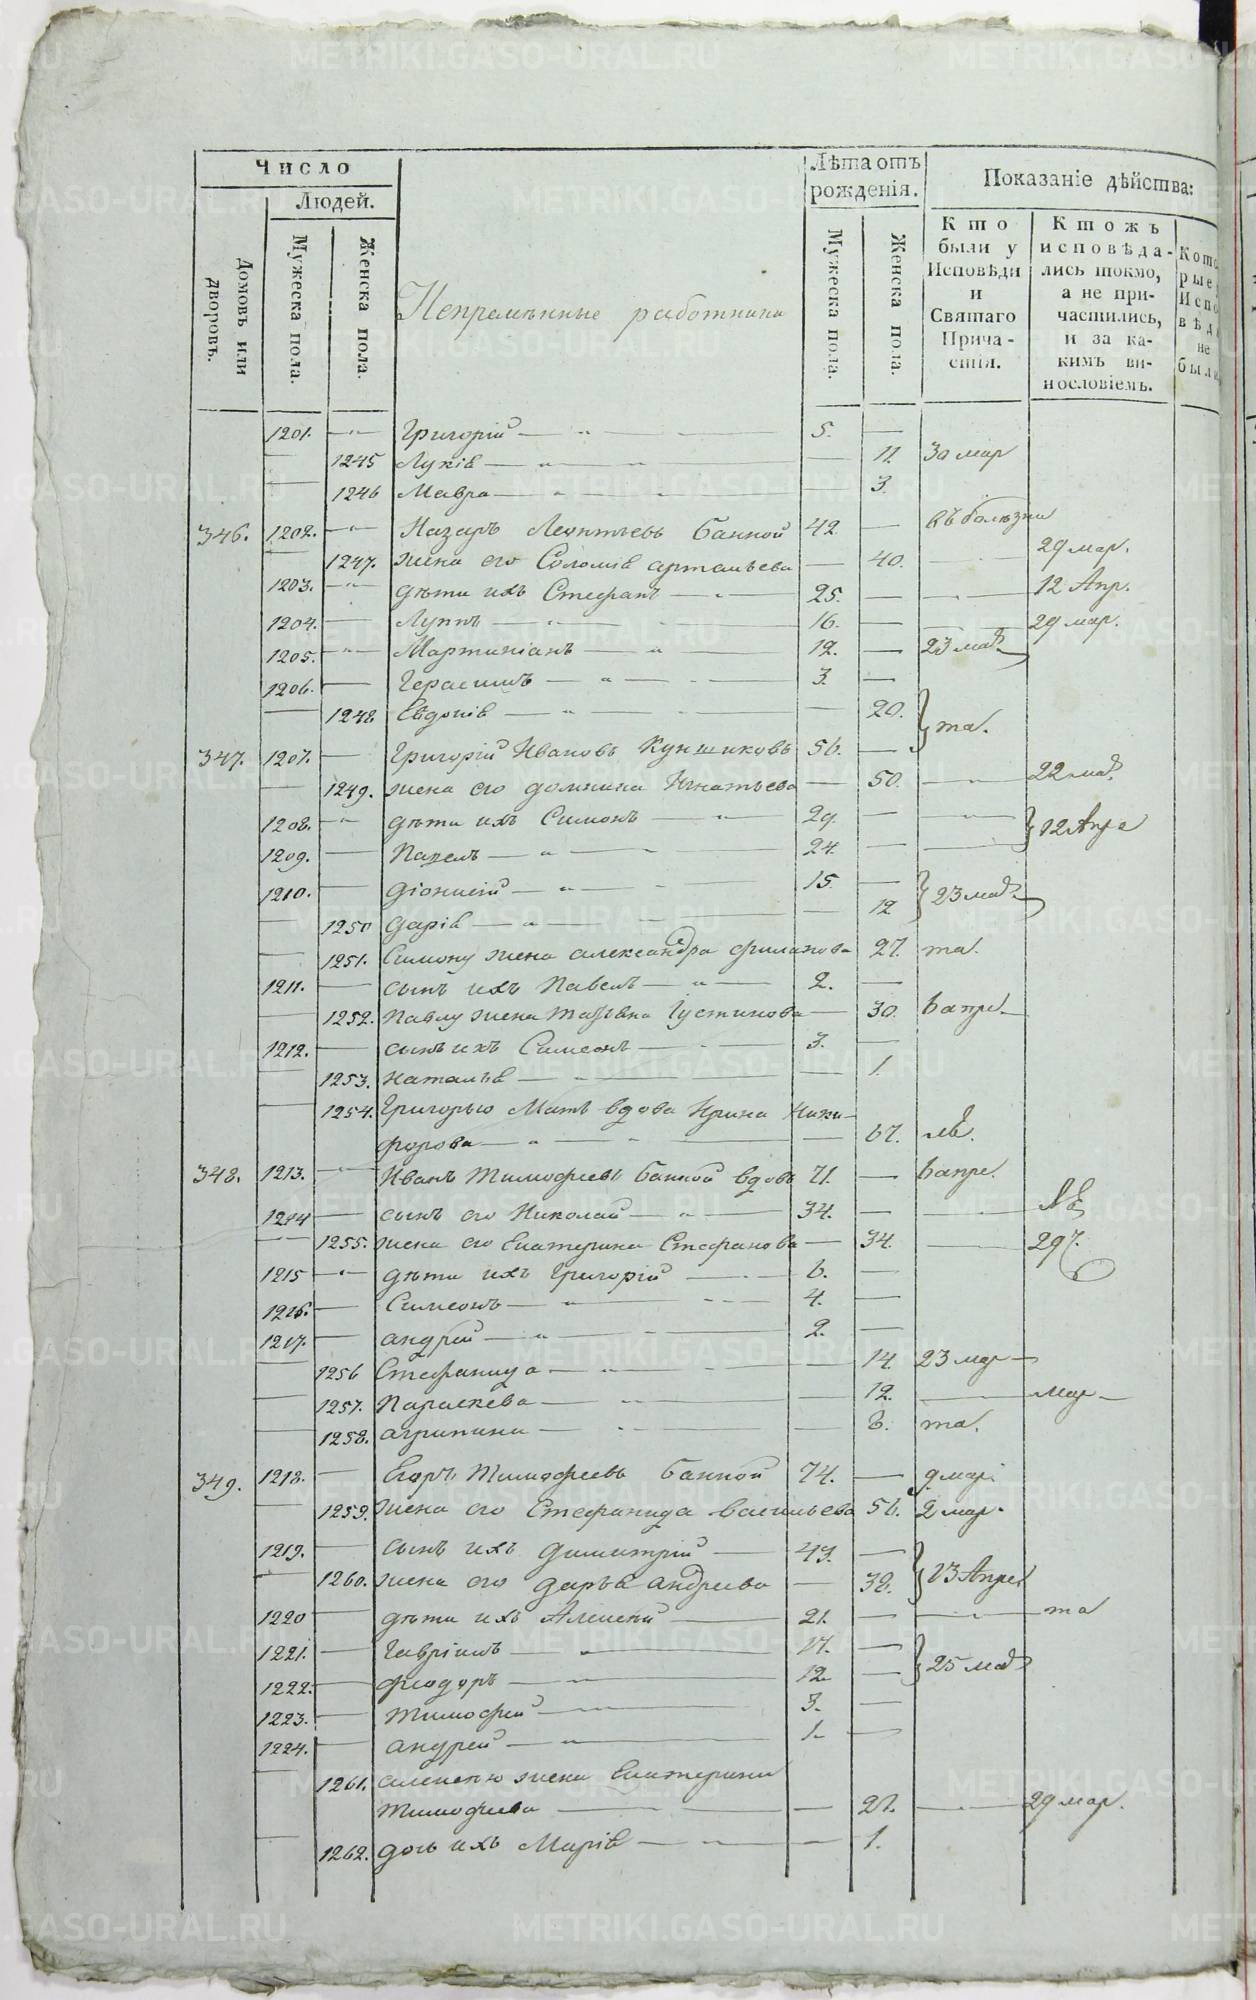 Число
Людей.
Домовъ или дворовъ.
Мужеска пола.
Женска пола.
Непремѣнные работники
Лѣта отъ рожденія.
Мужеска пола.
Женска пола.
Показаніе дѣйства:
Кто были у Исповѣди и Святаго Причастія.
Ктожъ исповѣдались токмо, а не причастились, и за какимъ винословіемъ.
Которые Исповѣди не были
1201. Григорій 5.
1245 Лукія 11. 30 мар
1246 Мавра 3.
346. 1202. Назаръ Леонтьевъ Банной 42. въ болѣзни
1247. жена его Соломія Артамьева 40. 29 мар.
1203. дѣти ихъ Стефанъ 25. 12 Апр.
1204. Луппъ 16. 29 мар.
1205. Мартиніанъ 12. 23 мар
1206. Герасимъ 3.
1248 Евдокія 20. } та.
347. 1207. Григорій Ивановъ Кунщиковъ 56.
1249. жена его Домнина Игнатьева 50. 22 мар
1208. дѣти ихъ Симонъ 29. } 12 Апре
1209. Павелъ 24.
1210. Діонисій 15. } 23 мар
1250 Дарія 12
1251. Симону жена Александра Филапова 27. та.
1211. сынъ ихъ Павелъ 2.
1252. Павлу жена Татьяна Густинова 30. 6 апре
1212. сынъ ихъ Симеонъ 3.
1253. Наталья 1.
1254. Григорью Мать вдова Ирина Ники-
форова 67.
348. 1213. Иванъ Тимофеевъ Банной вдовъ 71. 6 апре.
1214 сынъ его Николай 34.
1255. жена его Екатерина Стефанова 34. 29
1215 дѣти ихъ Григорій 6.
1216. Симеонъ 4.
1217. Андрей 2.
1256 Стефанида 14. 23 мар
1257. Параскева 12. мар
1258. Агрипина 8. та.
349. 1218. Егоръ Тимофеевъ Банной 74. 9 мар
1259. жена его Стефанида Васильева 56. 2 мар.
1219. сынъ ихъ Димитрій 43. } 13 Апре
1260. жена его Дарья Андреева 38.
1220 дѣти ихъ Алексей 21. та
1221. Гавріилъ 17. } 25 мар
1222. Феодоръ 12
1223. Тимофей 3.
1224. Андрей 1.
1261. Алексею жена Екатерина
Тимофеева 21. 29 мар.
1262. дочь ихъ Марія 1.
METRIKI.GASO-URAL.RU